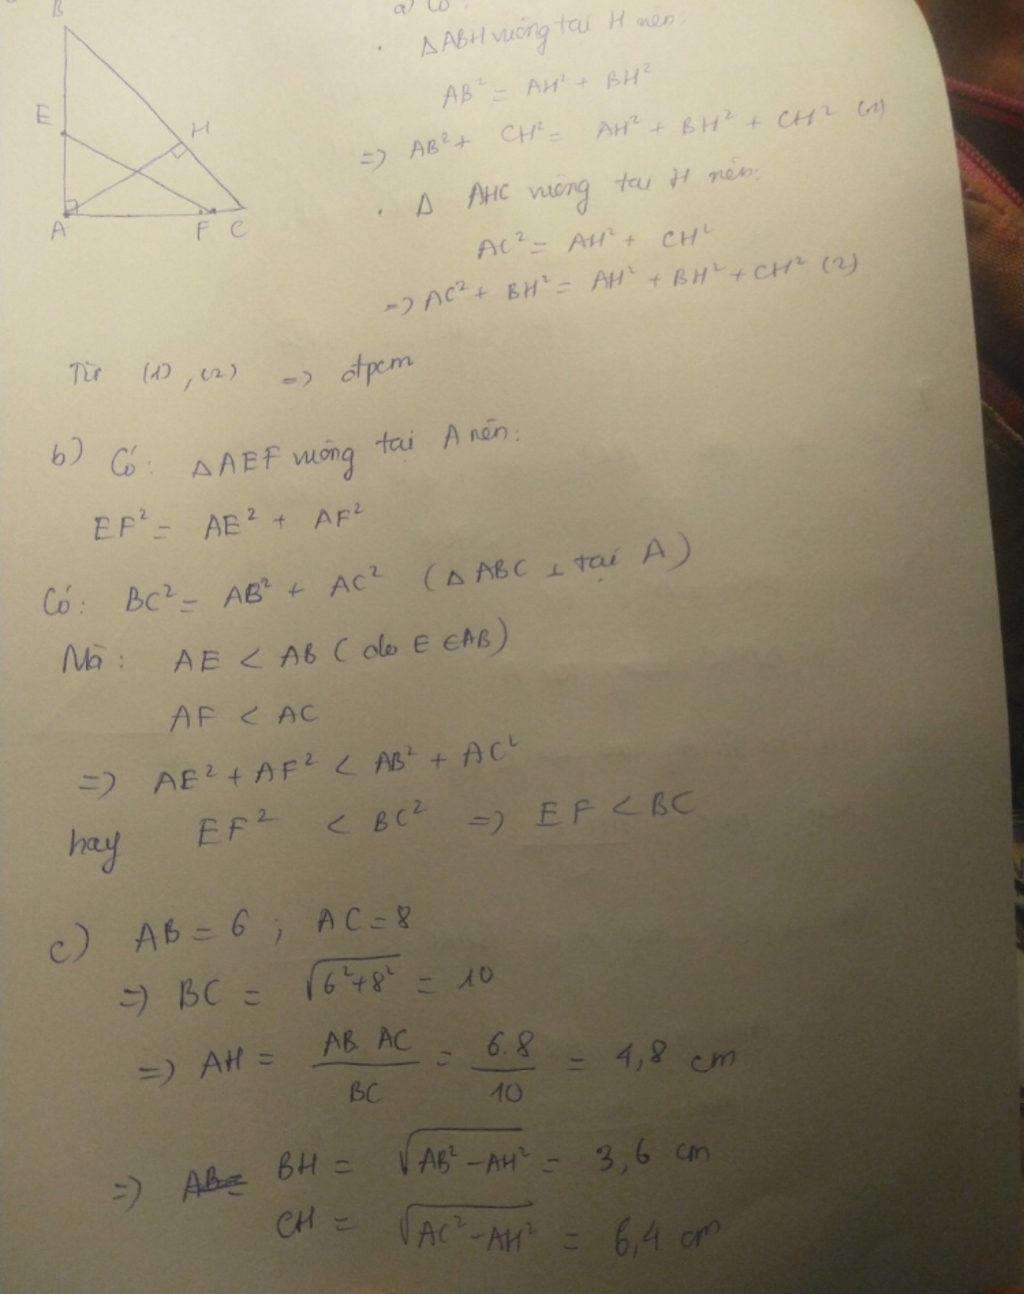 B
E
H
A
F
C
a) Có:
. ΔABH vuông tại H nên:
AB² = AH² + BH²
=> AB² + CH² = AH² + BH² + CH² (1)
. Δ AHC vuông tại H nên:
AC² = AH² + CH²
=> AC² + BH² = AH² + BH² + CH² (2)
Từ (1), (2) => đpcm
b) Có: ΔAEF vuông tại A nên:
EF² = AE² + AF²
Có: BC² = AB² + AC² (ΔABC ⊥ tại A)
Mà: AE < AB (do E ∈ AB)
AF < AC
=> AE² + AF² < AB² + AC²
hay EF² < BC² => EF < BC
c) AB = 6 ; AC = 8
=> BC = √(6²+8²) = 10
=> AH = AB.AC/BC = 6.8/10 = 4,8 cm
=> BH = √(AB² - AH²) = 3,6 cm
CH = √(AC² - AH²) = 6,4 cm